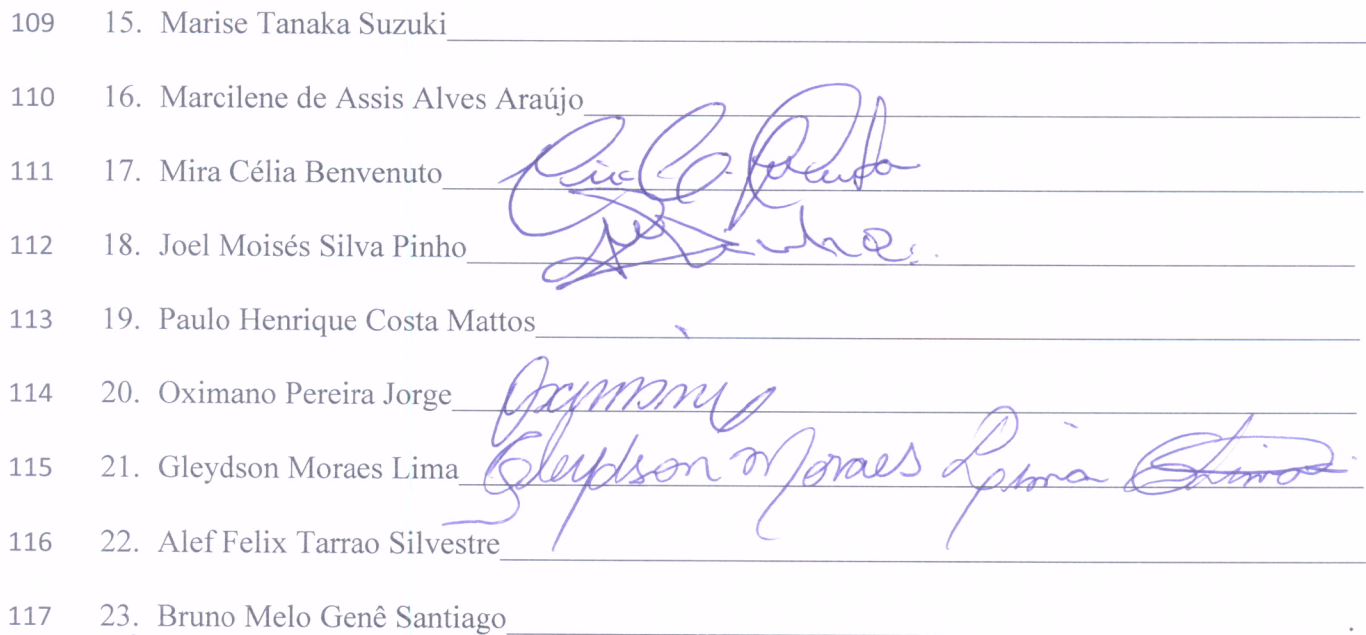 109 15. Marise Tanaka Suzuki
110 16. Marcilene de Assis Alves Araújo
111 17. Mira Célia Benvenuto
112 18. Joel Moisés Silva Pinho
113 19. Paulo Henrique Costa Mattos
114 20. Oximano Pereira Jorge
115 21. Gleydson Moraes Lima Gleydson Moraes Lima
116 22. Alef Felix Tarrao Silvestre
117 23. Bruno Melo Genê Santiago